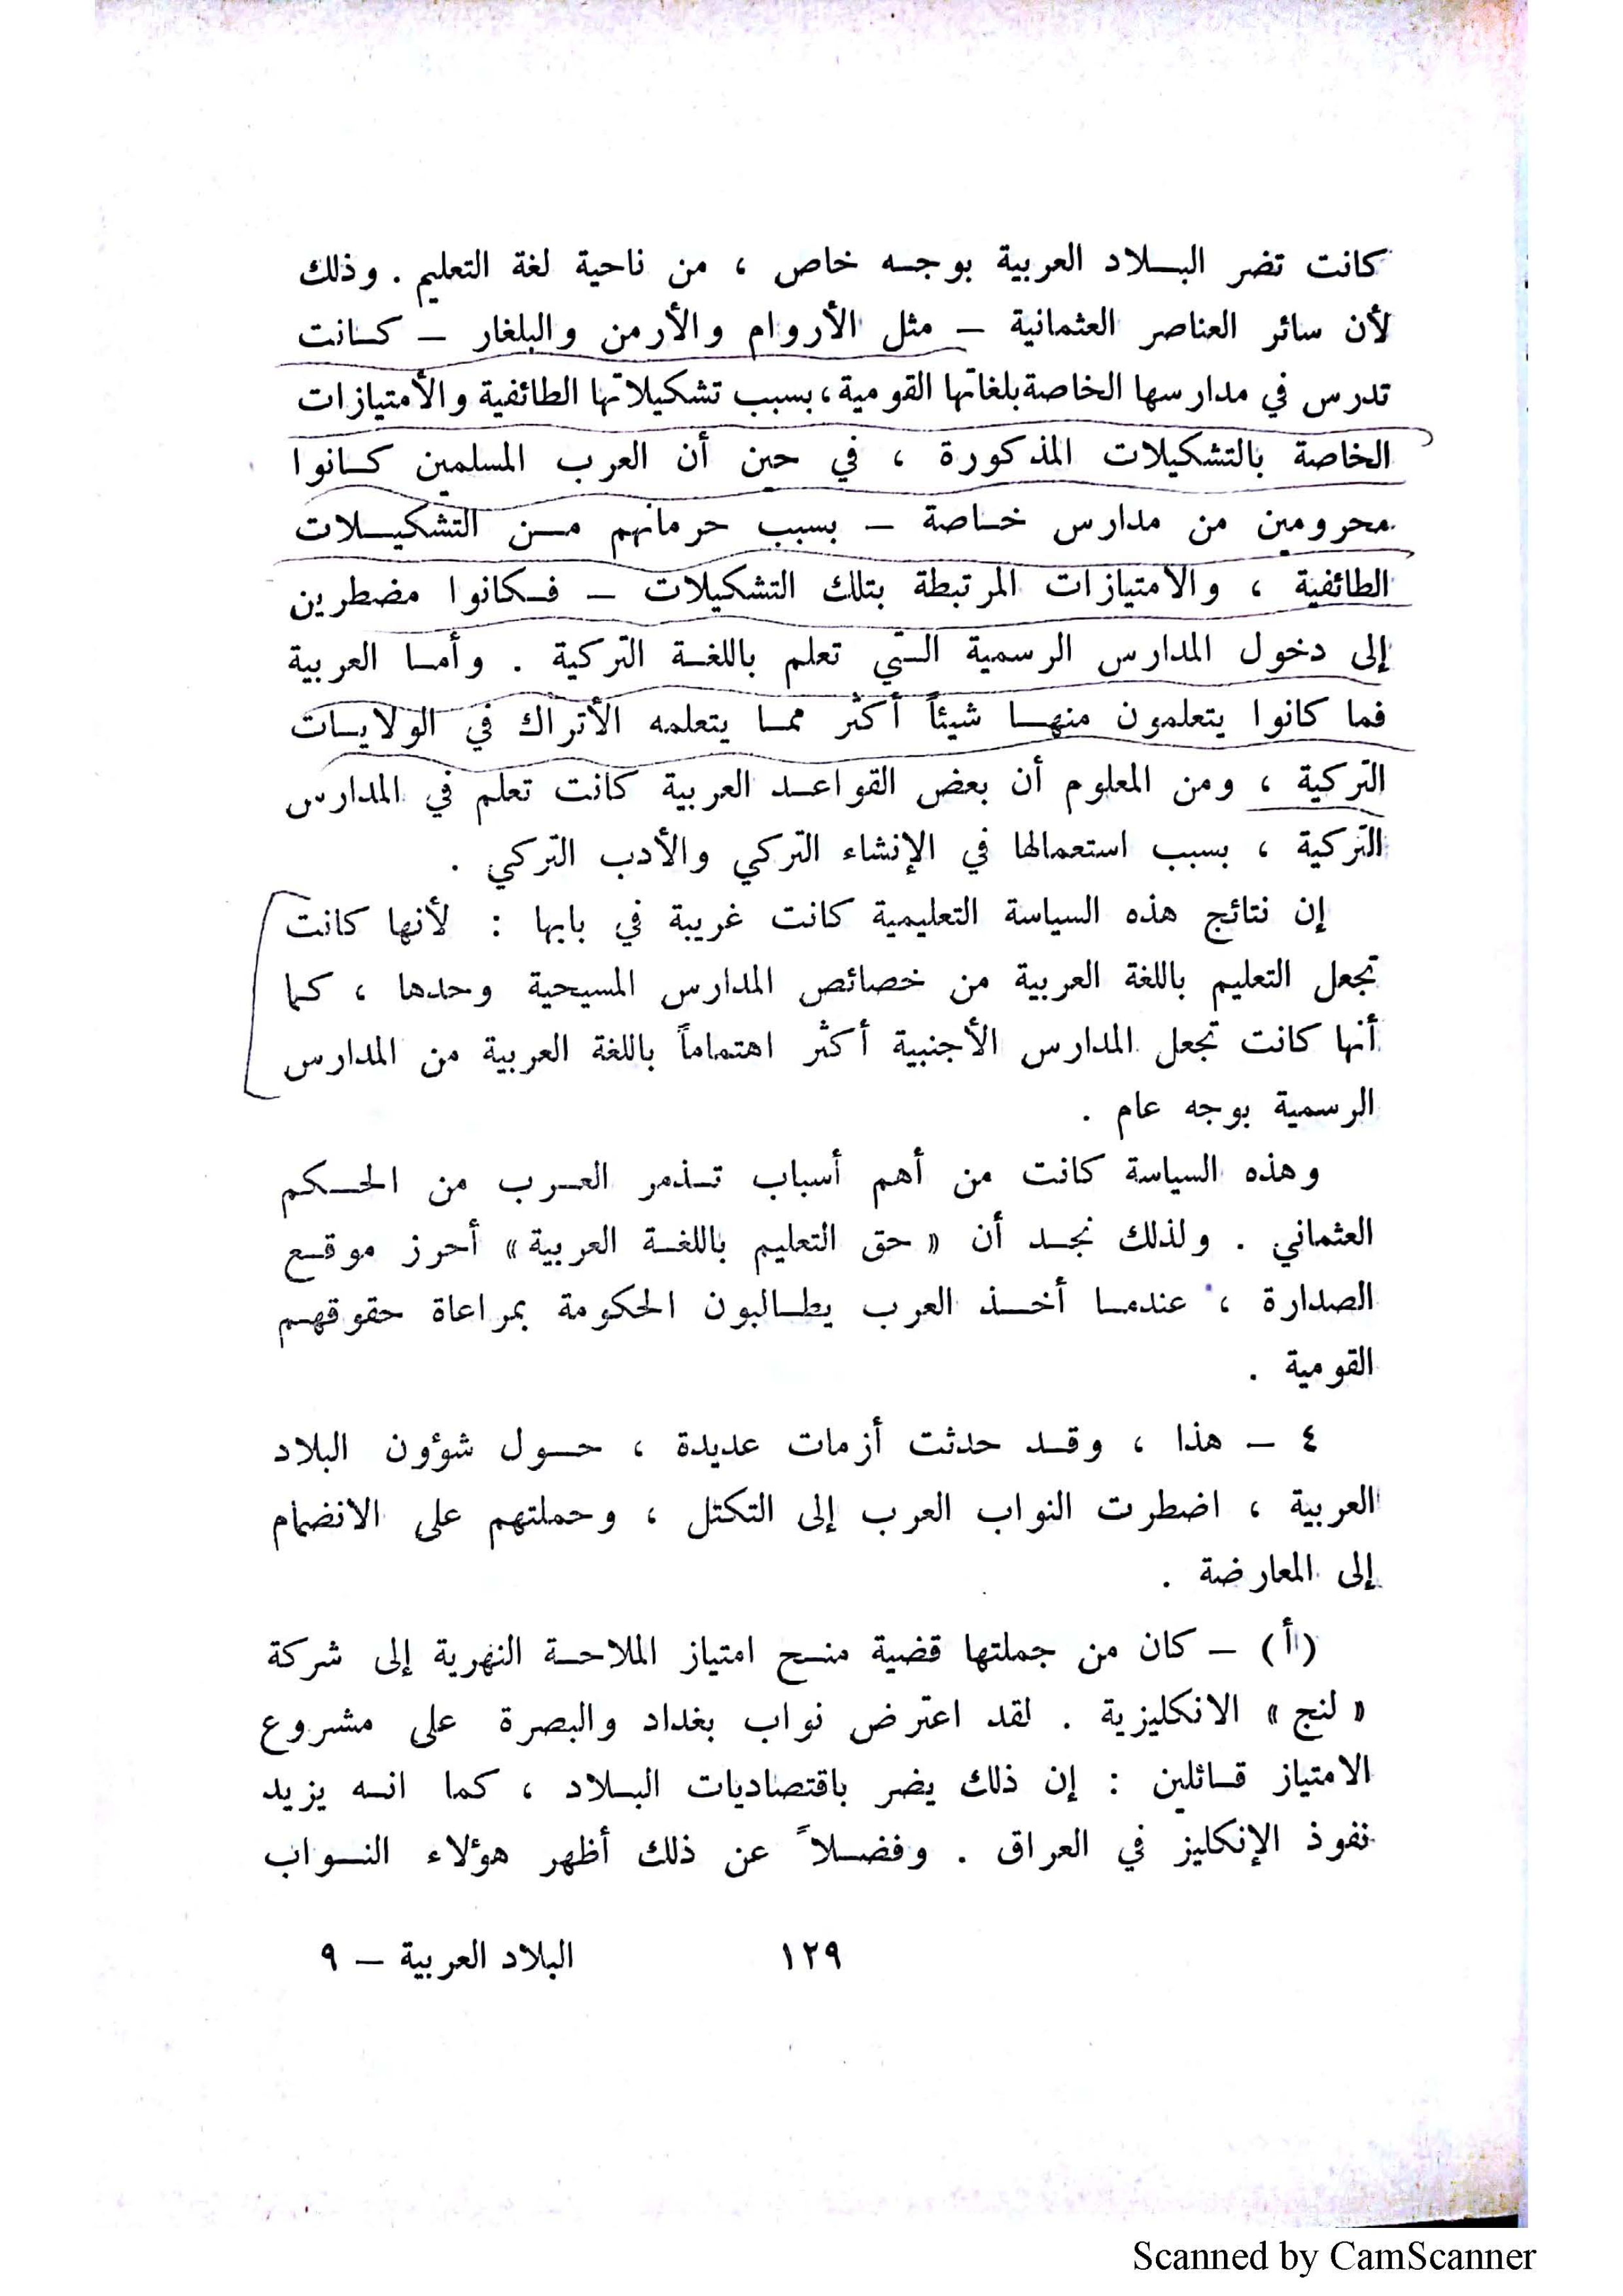 كانت تضر البلاد العربية بوجه خاص ، من ناحية لغة التعليم . وذلك
لأن سائر العناصر العثمانية – مثل الأروام والأرمن والبلغار – كانت
تدرس في مدارسها الخاصة بلغاتها القومية ، بسبب تشكيلاتها الطائفية والأمتيازات
الخاصة بالتشكيلات المذكورة ، في حين أن العرب المسلمين كانوا
محرومين من مدارس خاصة – بسبب حرمانهم من التشكيلات
الطائفية ، والامتيازات المرتبطة بتلك التشكيلات – فكانوا مضطرين
إلى دخول المدارس الرسمية التي تعلم باللغة التركية . وأما العربية
فما كانوا يتعلمون منها شيئاً أكثر مما يتعلمه الأتراك في الولايات
التركية ، ومن المعلوم أن بعض القواعد العربية كانت تعلم في المدارس
التركية ، بسبب استعمالها في الإنشاء التركي والأدب التركي .
إن نتائج هذه السياسة التعليمية كانت غريبة في بابها : لأنها كانت
تجعل التعليم باللغة العربية من خصائص المدارس المسيحية وحدها ، كما
أنها كانت تجعل المدارس الأجنبية أكثر اهتماماً باللغة العربية من المدارس
الرسمية بوجه عام .
وهذه السياسة كانت من أهم أسباب تذمر العرب من الحكم
العثماني . ولذلك نجد أن « حق التعليم باللغة العربية » أحرز موقع
الصدارة ، عندما أخذ العرب يطالبون الحكومة بمراعاة حقوقهم
القومية .
٤ – هذا ، وقد حدثت أزمات عديدة ، حول شؤون البلاد
العربية ، اضطرت النواب العرب إلى التكتل ، وحملتهم على الانضمام
إلى المعارضة .
(أ) – كان من جملتها قضية منح امتياز الملاحة النهرية إلى شركة
« لنج » الانكليزية . لقد اعترض نواب بغداد والبصرة على مشروع
الامتياز قائلين : إن ذلك يضر باقتصاديات البلاد ، كما انه يزيد
نفوذ الإنكليز في العراق . وفضلاً عن ذلك أظهر هؤلاء النواب
١٢٩
البلاد العربية – ٩
Scanned by CamScanner